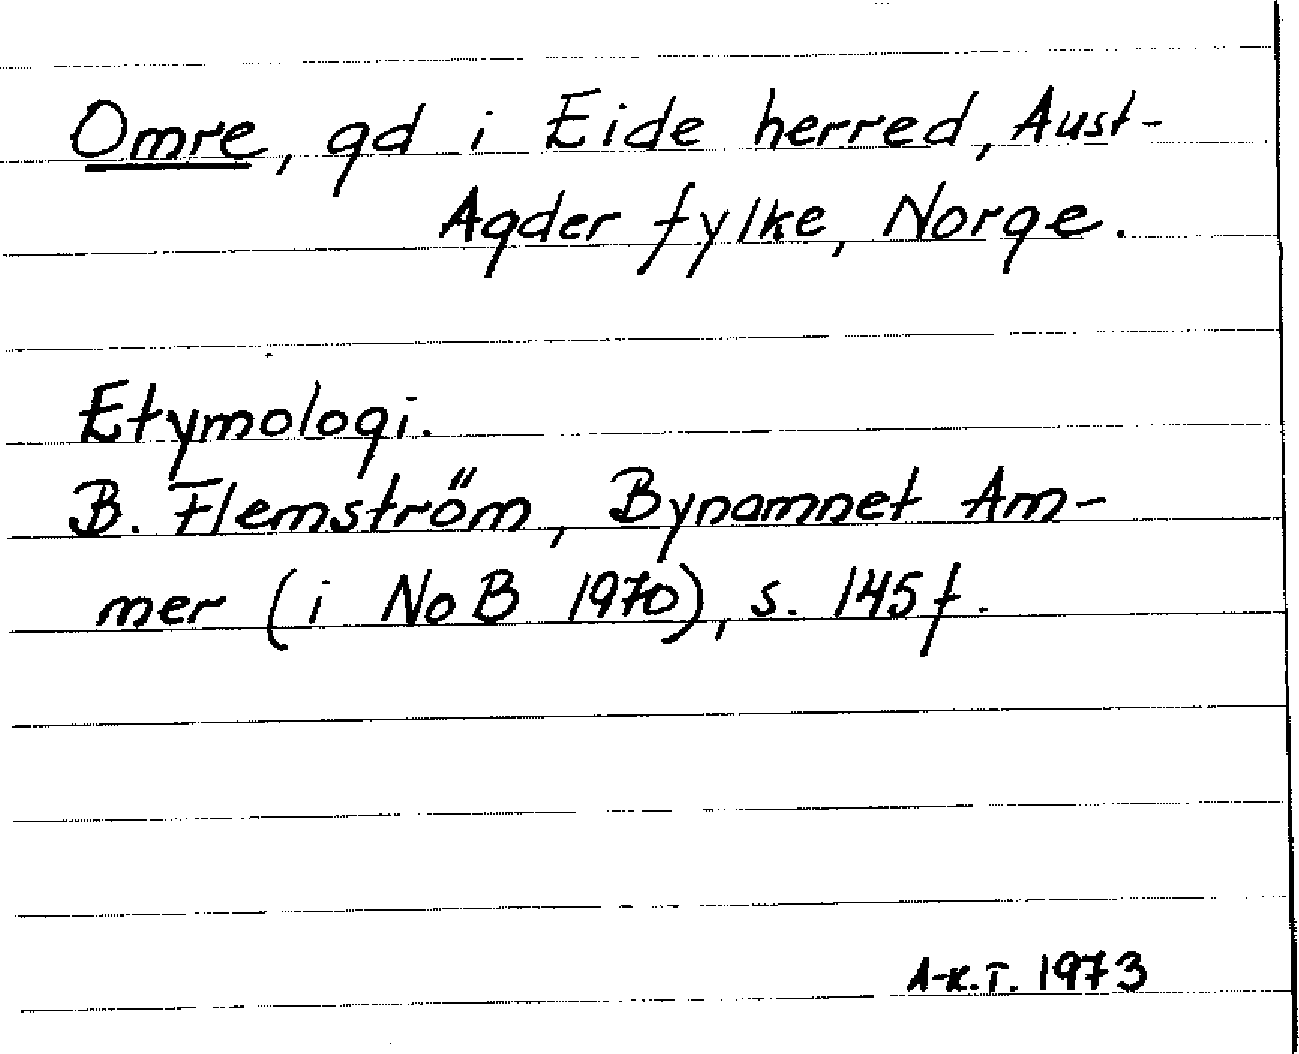 Omre, gd i Eide herred, Aust-
Agder fylke, Norge.
Etymologi.
B. Flemström, Bynamnet Am-
mer (i NoB 1970), s. 145 f.
A-K.T. 1973